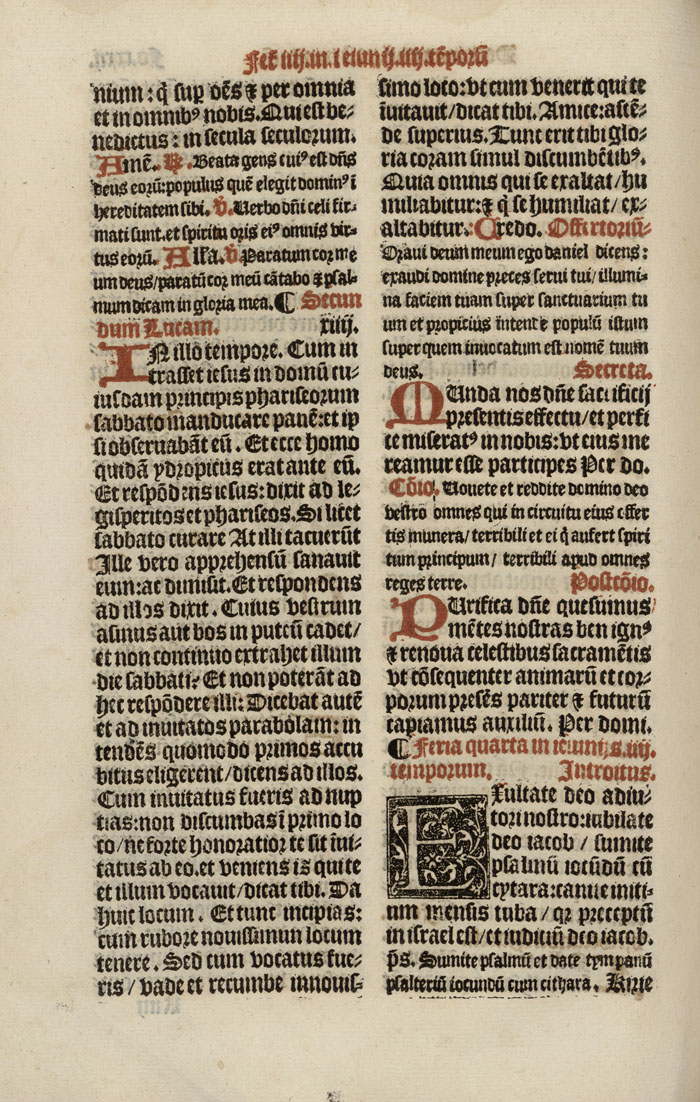 Fer̃ iiij. in ieiunij. iiij. tẽporũ
nium: q̃ sup oẽs ⁊ per omnia
et in omnibꝰ nobis. Qui est be⸗
nedictus: in secula seculorum.
Amẽ. ℟. Beata gens cuiꝰ est dñs
deus eorũ: populus quẽ elegit dominꝰ ĩ
hereditatem sibi. ℣. Verbo dñi celi fir⸗
mati sunt. et spiritu oris eiꝰ omnis vir⸗
tus eorũ. Alla. ℣ Paratum cor me
um deus/ paratũ cor meũ cãtabo ⁊ psal⸗
mum dicam in gloria mea. ¶ Secun
dum Lucam. xiiij.
IN illo tempore. Cum in
trasset iesus in domũ cu⸗
iusdam principis phariseorum
sabbato manducare panẽ: et ip
si obseruabãt eũ. Et ecce homo
quidã ydropicus erat ante eũ.
Et respõdens iesus: dixit ad le⸗
gisperitos et phariseos. Si licet
sabbato curare At illi tacuerũt
Ille vero apprehensũ sanauit
eum: ac dimisit. Et respondens
ad illos dixit. Cuius vestrum
asinus aut bos in puteũ cadet/
et non continuo extrahet illum
die sabbati: Et non poterãt ad
hec respõdere illi: Dicebat autẽ
et ad inuitatos parabolam: in
tendẽs quomodo primos accu
bitus eligerent/ dicens ad illos.
Cum inuitatus fueris ad nup
tias: non discumbas ĩ primo lo
co/ ne forte honoratior te sit ĩui⸗
tatus ab eo. et veniens is qui te
et illum vocauit/ dicat tibi. Da
huic locum. Et tunc incipias:
cum rubore nouissimum locum
tenere. Sed cum vocatus fue⸗
ris/ vade et recumbe in nouis⸗
simo loco: vt cum venerit qui te
ĩuitauit/ dicat tibi. Amice: ascẽ⸗
de superius. Tunc erit tibi glo⸗
ria coram simul discumbẽtibꝰ.
Quia omnis qui se exaltat/ hu
miliabitur: ⁊ q̃ se humiliat/ ex⸗
altabitur. Credo. Offertoriũ⸗
Oraui deum meum ego daniel dicens:
exaudi domine preces serui tui/ illumi⸗
na faciem tuam super sanctuarium tu
um et propicius intende populũ istum
super quem inuocatum est nomẽ tuum
deus. Secreta.
MUnda nos dñe sacrificij
presentis effectu/ et perfi
ce miseratꝰ in nobis: vt eius me
reamur esse participes Per do.
Cõio. Vouete et reddite domino deo
vestro omnes qui in circuitu eius offer
tis munera/ terribili et ei q̃ aufert spiri
tum principum/ terribili apud omnes
reges terre. Postcõio.
PUrifica dñe quesumus
mẽtes nostras ben ignꝰ
⁊ renoua celestibus sacramẽtis
vt cõsequenter animarũ et cor⸗
porum presẽs pariter ⁊ futurũ
capiamus auxiliũ. Per domi.
¶ Feria quarta in ieiunijs. iiij.
temporum. Introitus.
EXultate deo adiu⸗
tori nostro: iubilate
deo iacob/ sumite
psalmũ iocũdũ cũ
cytara: canite initi⸗
um mensis tuba/ qr preceptũ
in israel est/ et iudiciũ deo iacob.
p̃s. Sumite psalmũ et date tympanũ
psalteriũ iocundũ cum cithara. Kirie